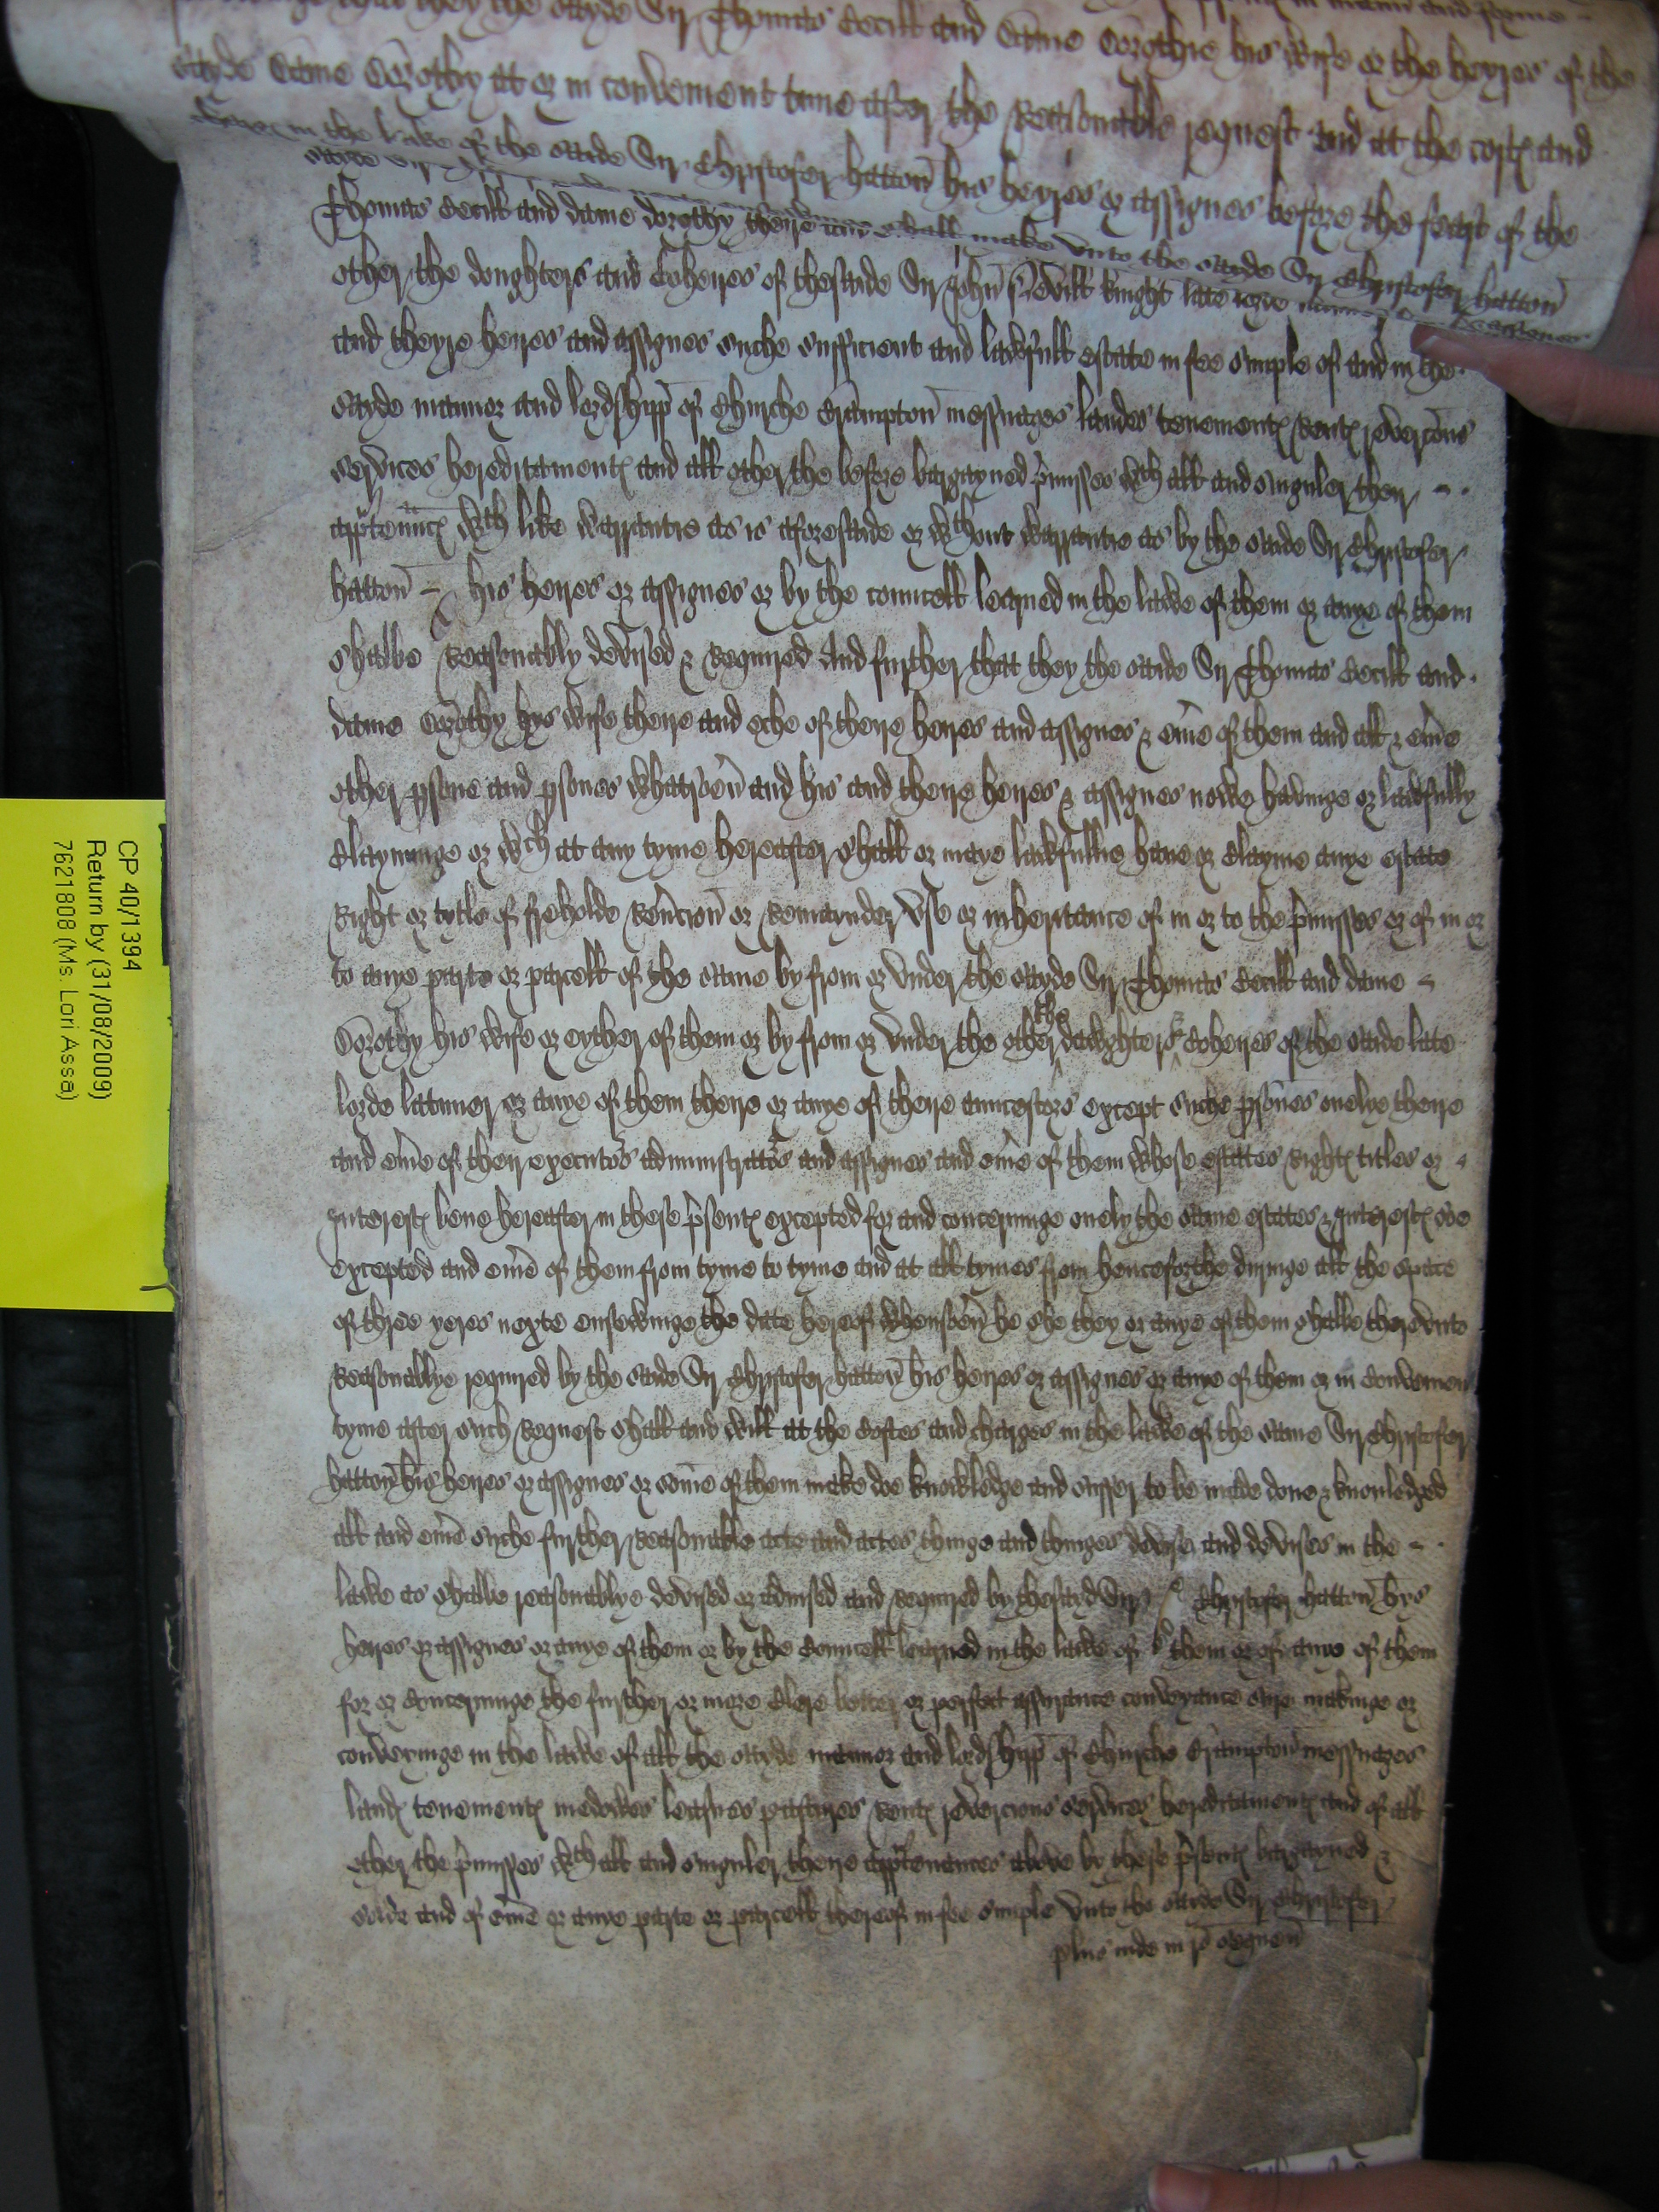 that they the sayde Sir Thomas Cecill and Dame Dorothie his wife or the heyres of the
sayde Dame Dorothy at or in convenient time after the Reasonable request and at the costꝭ and
in the lawe of the saide Sir Christofer hatton his heyres or assignes before the feast of the
shall make unto the sayde Sir Christofer hatton
Thomas Cecill and dame dorothy theire
other the doughters and Coheires of thesaide Sir John Nevill knight late
and theyre heires and assignes suche sufficient and lawfull estate in fee simple of and in the
sayde mannor and lordshipp of Churche Brampton messuages landes tenementꝭ Rentꝭ revercōns
services hereditamentꝭ and all other the before bargayned p̄misses wth all and singuler their
app̄tenncꝭ wth like warrantie as is aforesaide or wthout warrantie as by the saide Sir Christofer
hatton his heires or assignes or by the councell learned in the lawe of them or anye of them
shalbe Reasonably devised & Required And further that they the saide Sir Thomas Cecill and
dame Dorothy hys wife theire and eche of theire heires and assignes & eūie of them and all & eūie
other psone and psones whatsoeū and his and theire heires & assignes nowe havinge or lawfully
Clayminge or wch at any tyme hereafter shall or maye lawfullie have or Clayme anye estate
Right or tytle of freholde Reūcion or Remaynder use or inheritance of in or to the p̄misses or of in or
to anye parte or parcell of the same by from or under the sayde Sir Thomas Cecill and dame
Dorothy his wife or eyther of them or by from or under the other the dawghters & Coheires of the saide late
lorde latimer or anye of them theire or anye of theire auncestors except suche psones onelye theire
and eūie of their executors administrators and assignes and eūie of them whose estates Rightꝭ titles or
Interestꝭ bene hereafter in these p̄sentꝭ excepted for and concerninge onely the same estates & Interestꝭ soe
excepted and eūie of them from tyme to tyme and at all tymes from henceforthe duringe all the space
of three yeres nexte ensewinge the date hereof whensoeū he she they or anye of them shalbe therevnto
Reasonablye required by the saide Sir Christofer hatton his heires or assignes or anye of them or in Convenien
tyme after such Request shall and will at the Costes and charges in the lawe of the same Sir Christofer
hatton his heires or assignes or some of them make doe knowledge and suffer to be made done & knowledged
all and eūie suche further Reasonable acte and actes thinge and thinges devise and devises in the
lawe as shalbe reasonablye devised or advised and Required by thesayd Sir Christofer hatton hys
heires or assignes or anye of them or by the Councell learned in the lawe of them or of anye of them
for or Concerninge the further or more Clere better or perfect assurance conveyance sure makinge or
conveyinge in the lawe of all the sayde mannor and lordshipp of Churche Brampton messuages
landꝭ tenementꝭ medowes leasues pastures Rentꝭ revercions services hereditamentꝭ and of all
other the p̄misses wth all and singuler theire app̄tenances above by these p̄sentꝭ bargayned &
solde and of eūie or anye parte or parcell thereof in fee simple unto the saide Sir Christofer
plus inde in ro sequen
CP 40/1394
Return by (31/08/2009)
7621808 (Ms. Lori Assa)